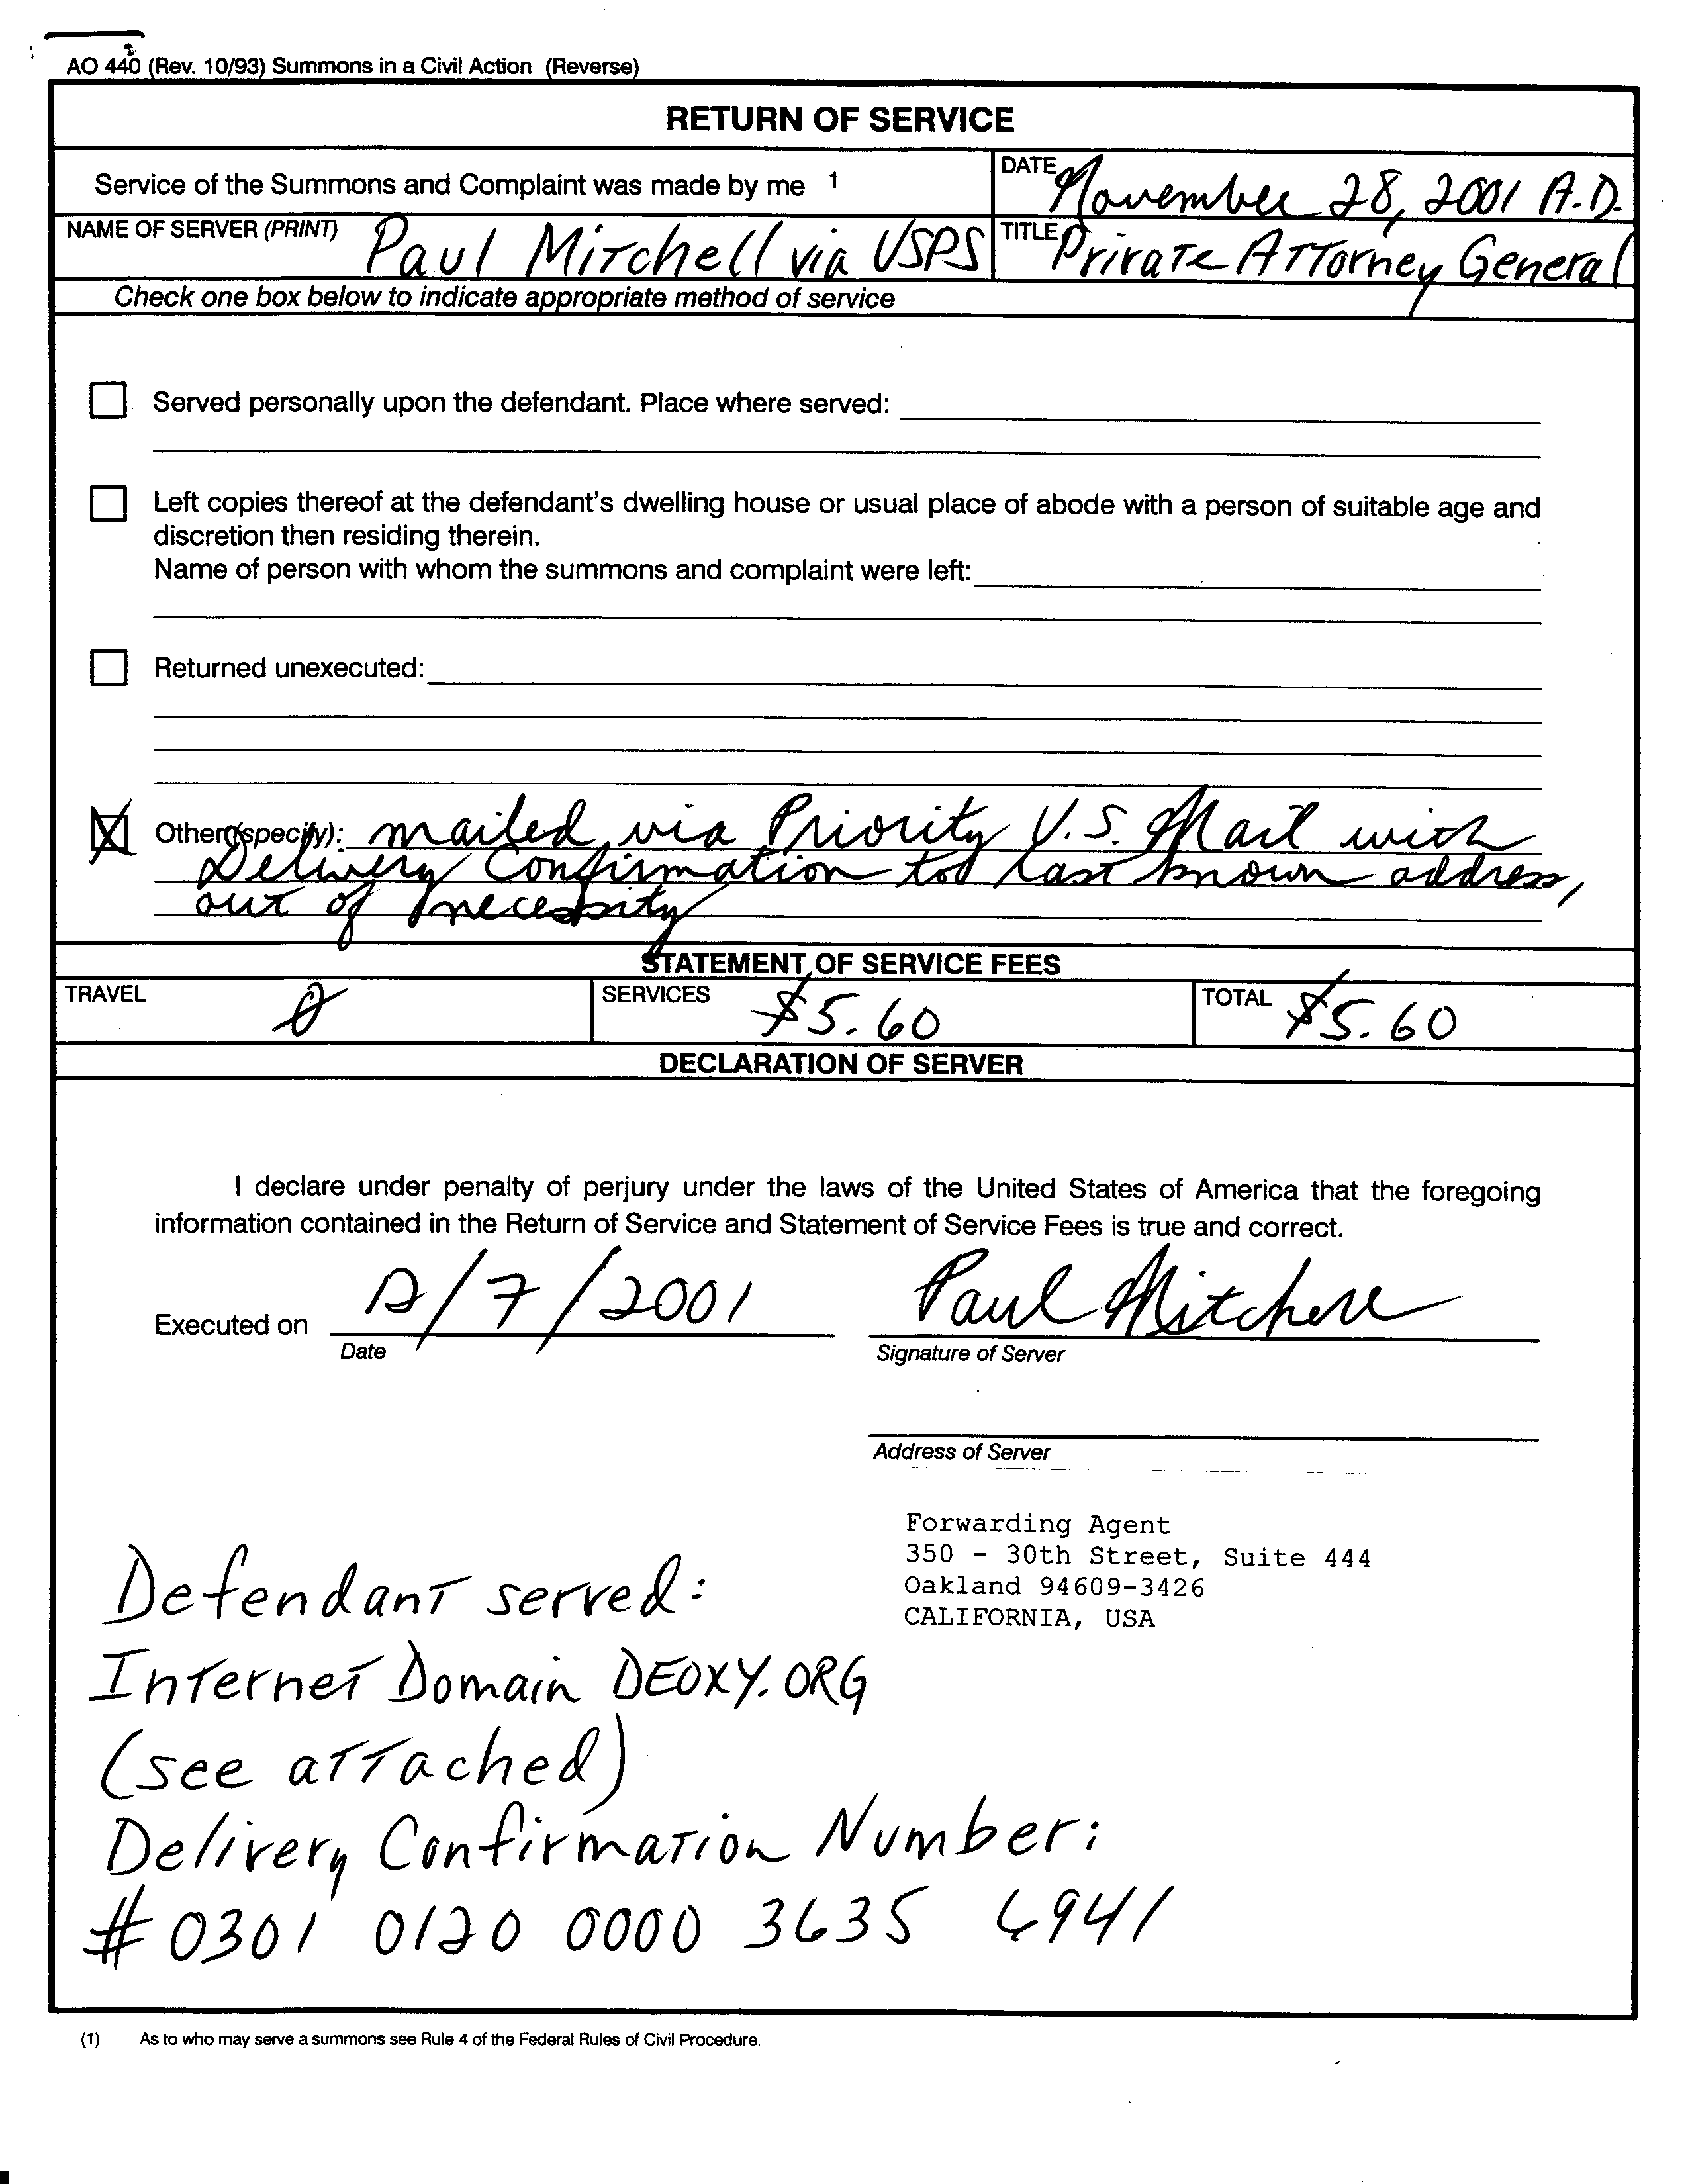 AO 440 (Rev. 10/93) Summons in a Civil Action (Reverse)
RETURN OF SERVICE
Service of the Summons and Complaint was made by me 1
DATE November 28, 2001 A.D.
NAME OF SERVER (PRINT) Paul Mitchell via USPS
TITLE Private Attorney General
Check one box below to indicate appropriate method of service
Served personally upon the defendant. Place where served:
Left copies thereof at the defendant's dwelling house or usual place of abode with a person of suitable age and
discretion then residing therein.
Name of person with whom the summons and complaint were left:
Returned unexecuted:
Other (specify): mailed via Priority U.S. Mail with
Delivery Confirmation to last known address,
out of necessity
STATEMENT OF SERVICE FEES
TRAVEL 0
SERVICES $5.60
TOTAL $5.60
DECLARATION OF SERVER
I declare under penalty of perjury under the laws of the United States of America that the foregoing
information contained in the Return of Service and Statement of Service Fees is true and correct.
Executed on 12/7/2001
Paul Mitchell
Date
Signature of Server
Address of Server
Forwarding Agent
350 - 30th Street, Suite 444
Oakland 94609-3426
CALIFORNIA, USA
Defendant served:
Internet Domain DEOXY.ORG
(see attached)
Delivery Confirmation Number:
# 0301 0120 0000 3635 6941
(1) As to who may serve a summons see Rule 4 of the Federal Rules of Civil Procedure.